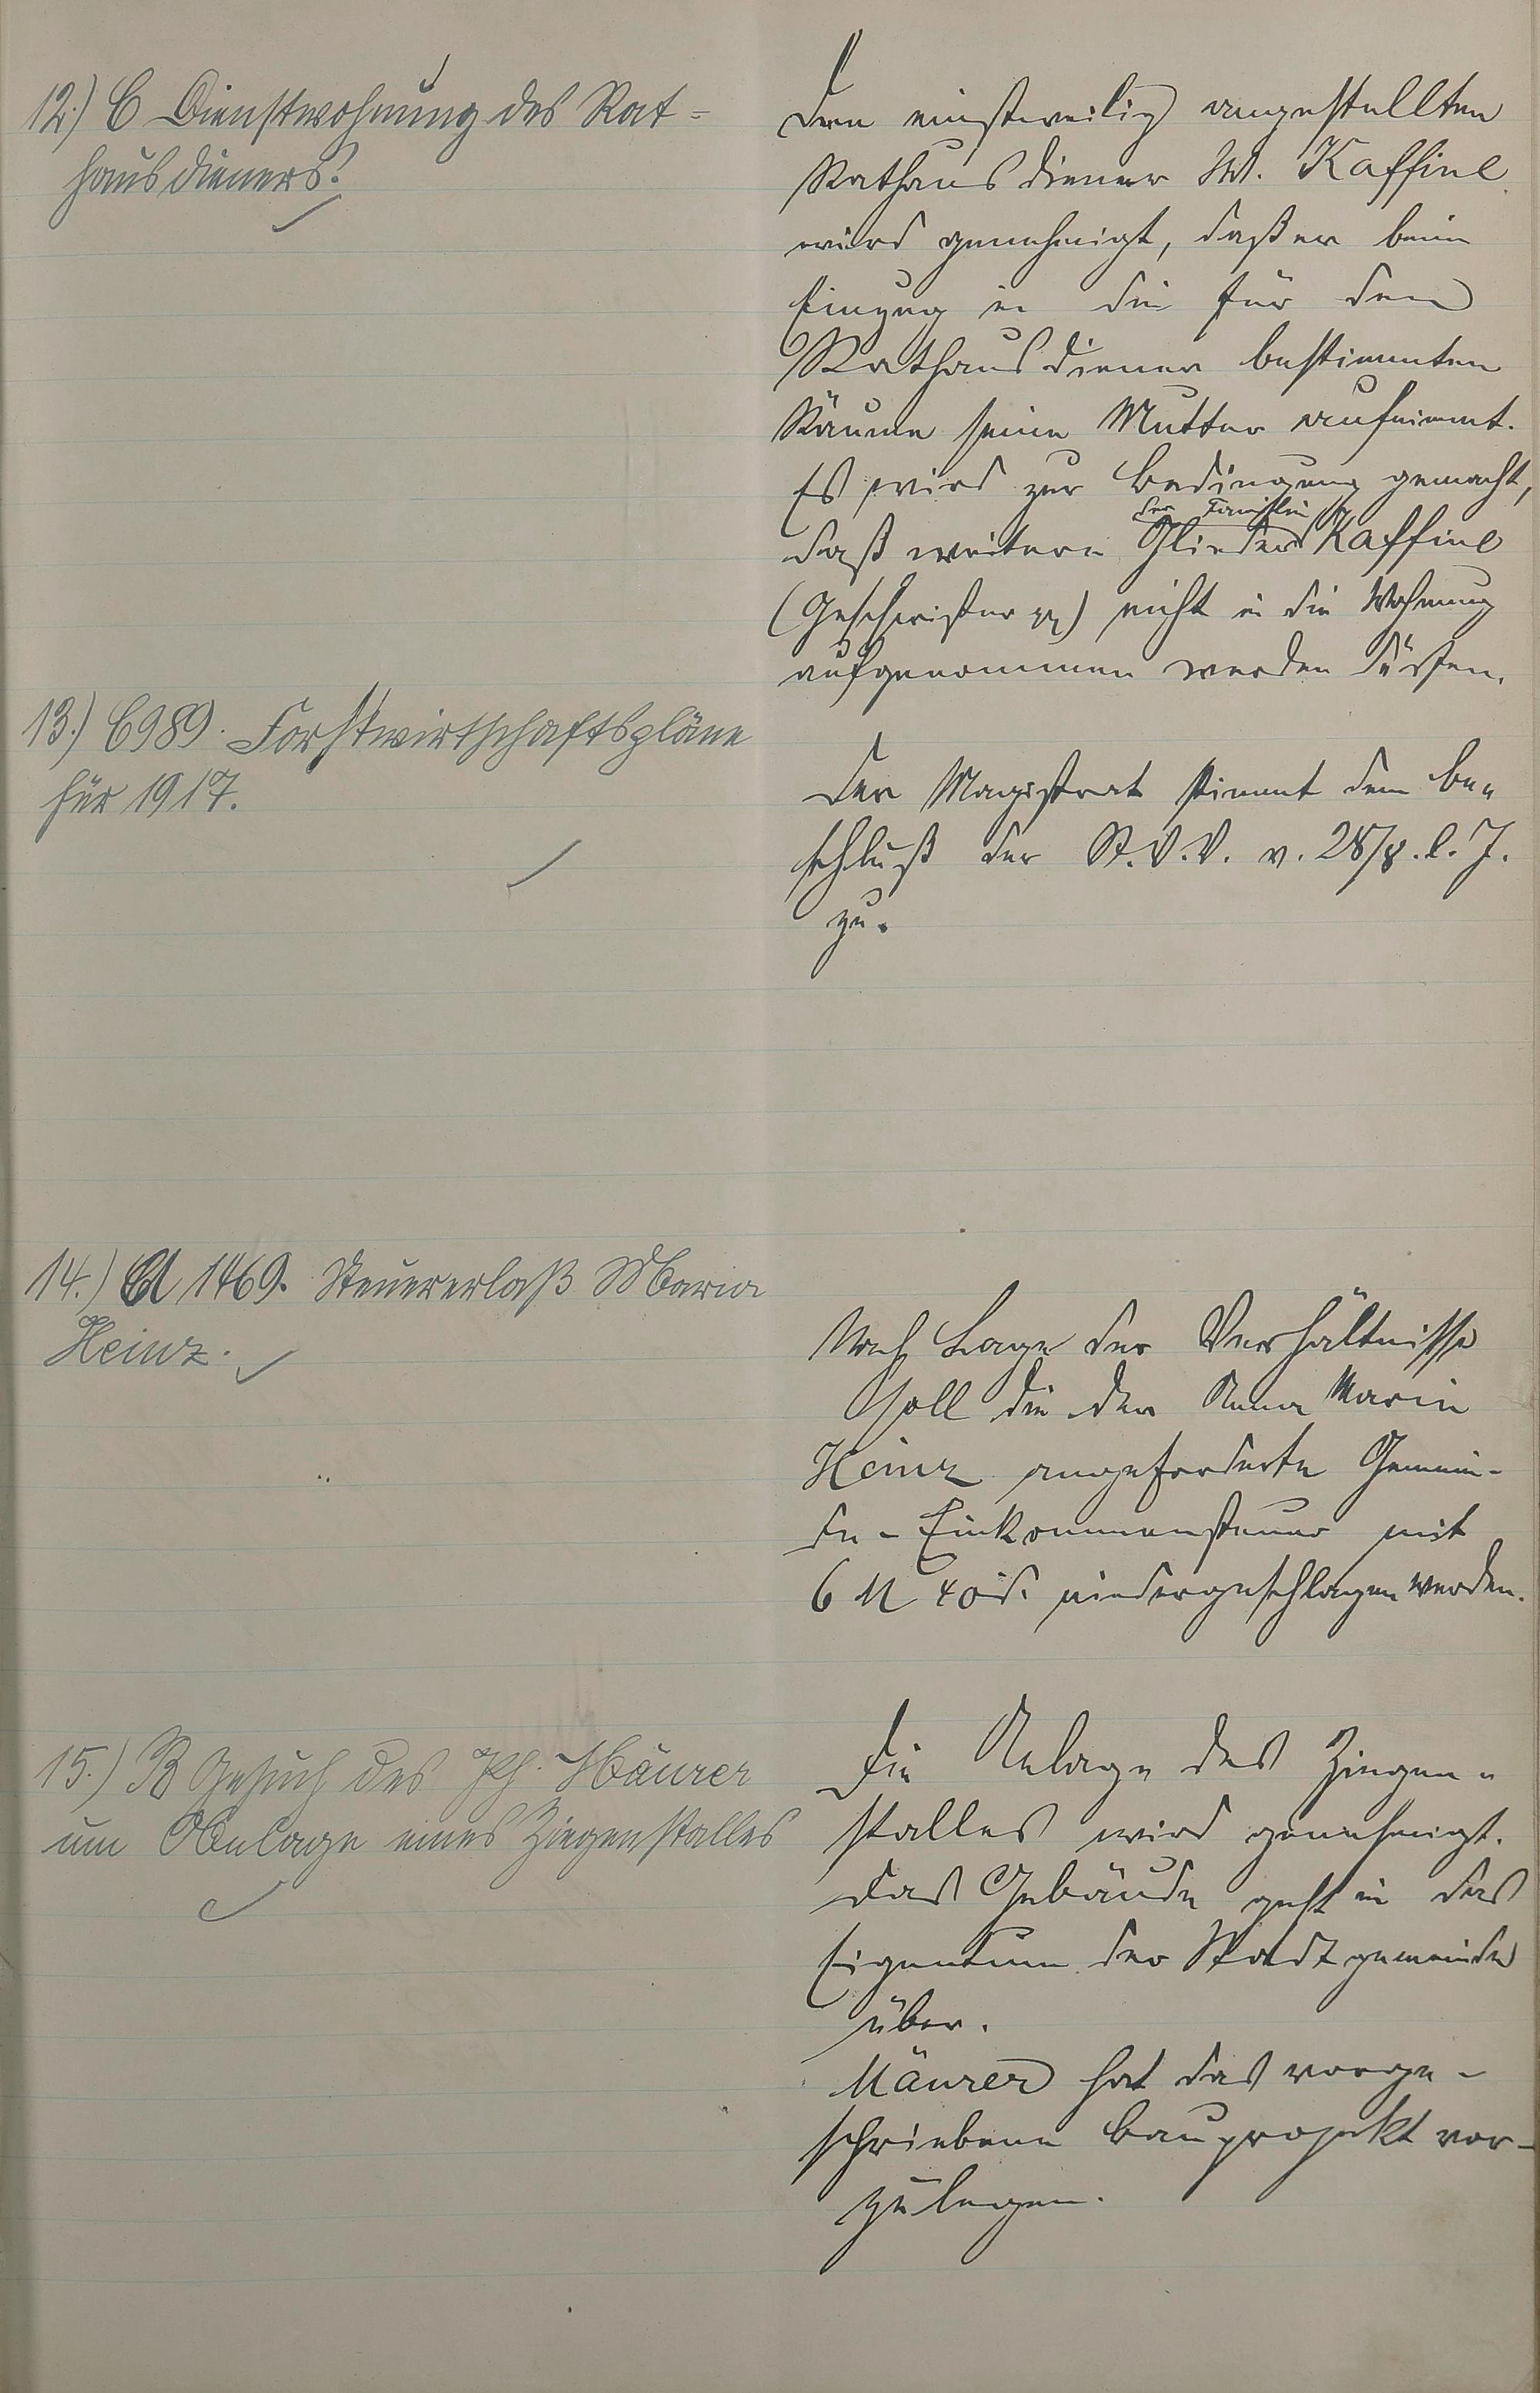 12.) C Dienstwohnung des Rat-
hausdieners.
Dem einstweilig angestellten
Rathausdiener W. Kaffine
wird genehmigt, daß er beim
Einzug in die für den
Rathausdiener bestimmten
Räume seine Mutter aufnimmt.
Es wird zur Bedingung gemacht,
der Familie
daß weitere Glieder Kaffine
(Geschwister pp) nicht in die Wohnung
aufgenommen werden dürfen.
13.) C 989. Forstwirtschaftspläne
für 1917.
Der Magistrat stimmt dem Be-
schluß der St.V.V. v. 28/8. l. J.
zu.
14.) A 1469. Steuererlaß Maria
Heinz.
Nach Lage der Verhältnisse
soll die der Anna Maria
Heinz angeforderte Gemein-
de-Einkommensteuer mit
6 M 40 d. niedergeschlagen werden.
15.) B Gesuch des Ph. Mäurer
um Anlage eines Ziegenstalles
Die Anlage des Ziegen-
stalles wird genehmigt.
Das Gebäude geht in das
Eigentum der Stadtgemeinde
über.
Mäurer hat das vorge-
schriebene Bauprojekt vor-
zulegen.